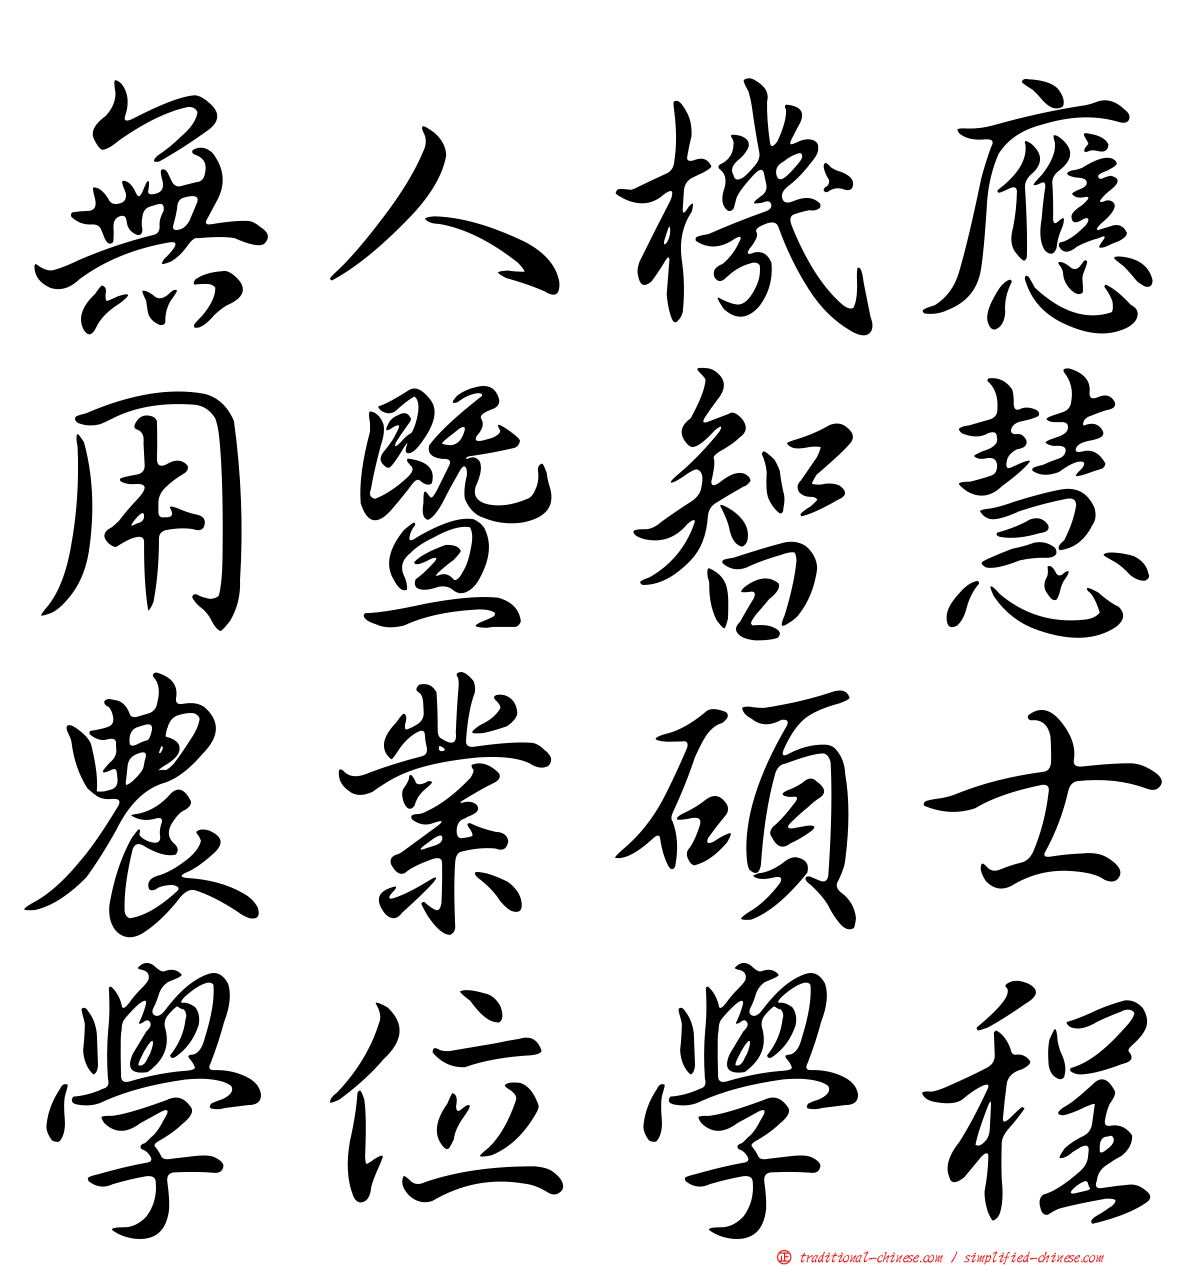 無人機應
用暨智慧
農業碩士
學位學程
正 traditional-chinese.com / simplified-chinese.com